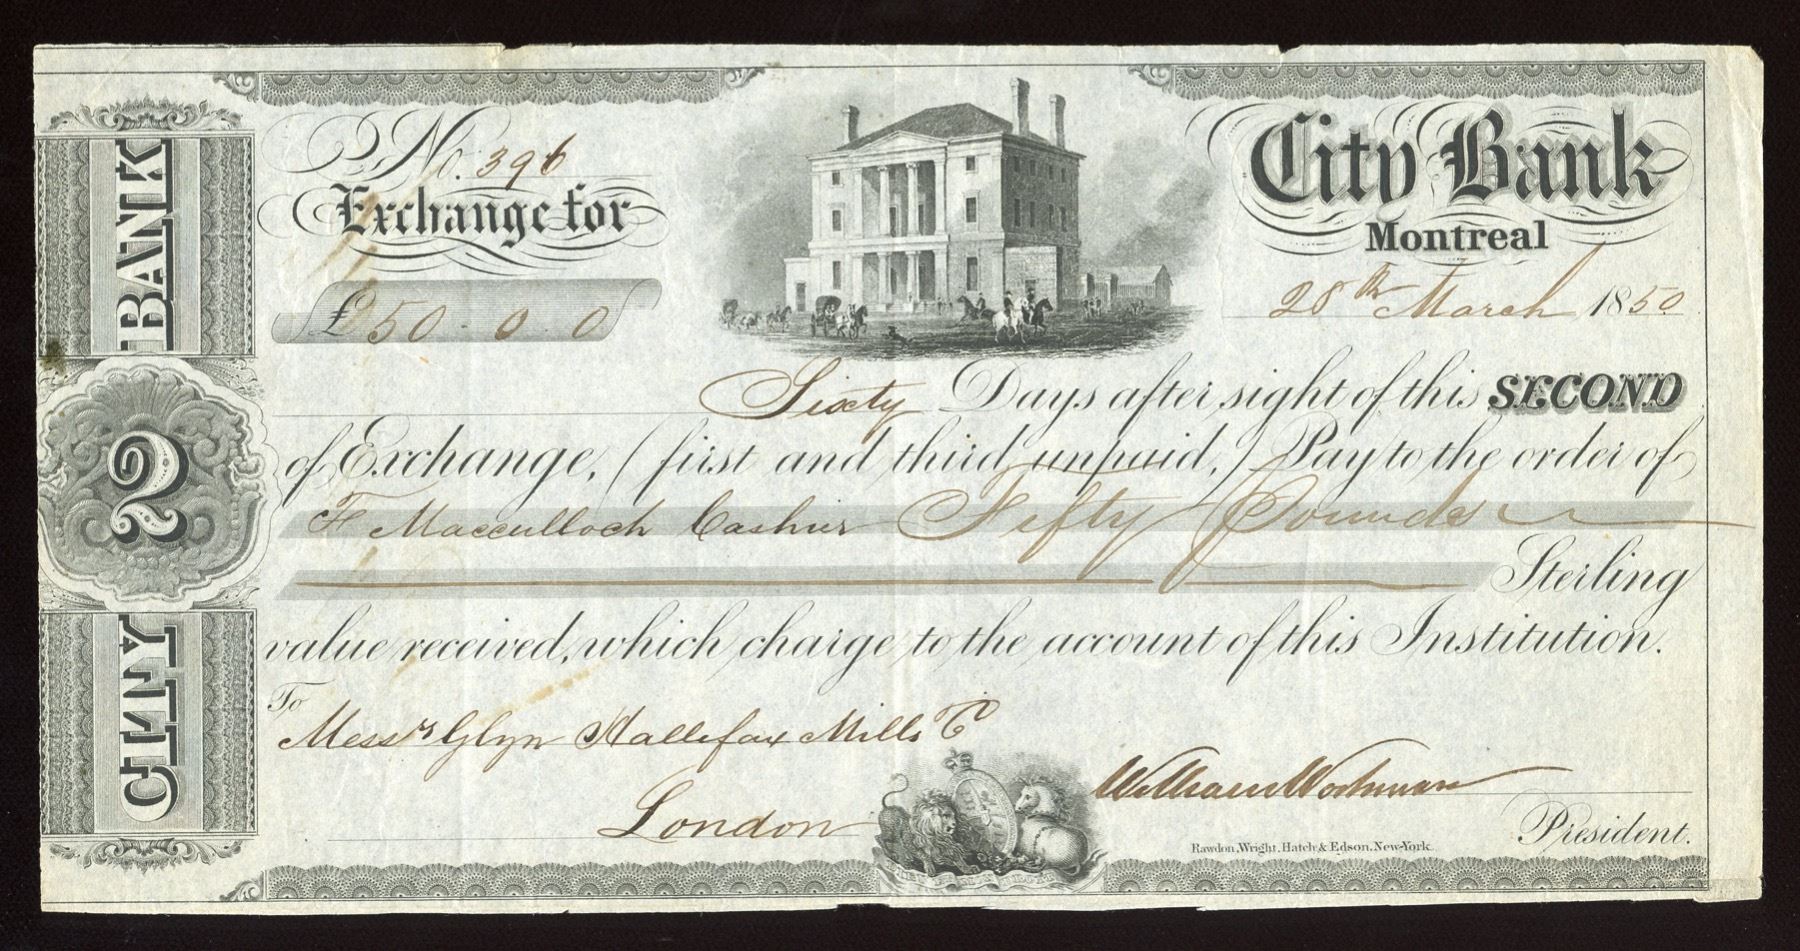 CITY BANK
2
No. 396
Exchange for
£50 . 0 . 0
City Bank
Montreal
28th March 1850
Sixty Days after sight of this SECOND
of Exchange, (first and third unpaid,) Pay to the order of
F Macculloch Cashier Fifty Pounds
Sterling
value received, which charge to the account of this Institution.
To
Messrs Glyn Hallifax Mills Co
London
William Workman
President.
Rawdon, Wright, Hatch & Edson, New-York.